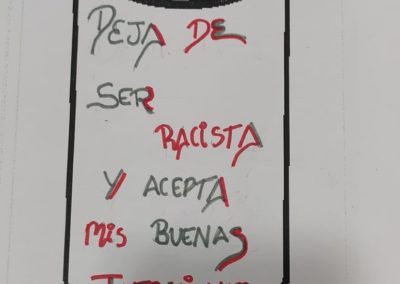 DEJA DE
SER
RACISTA
Y ACEPTA
MIS BUENAS